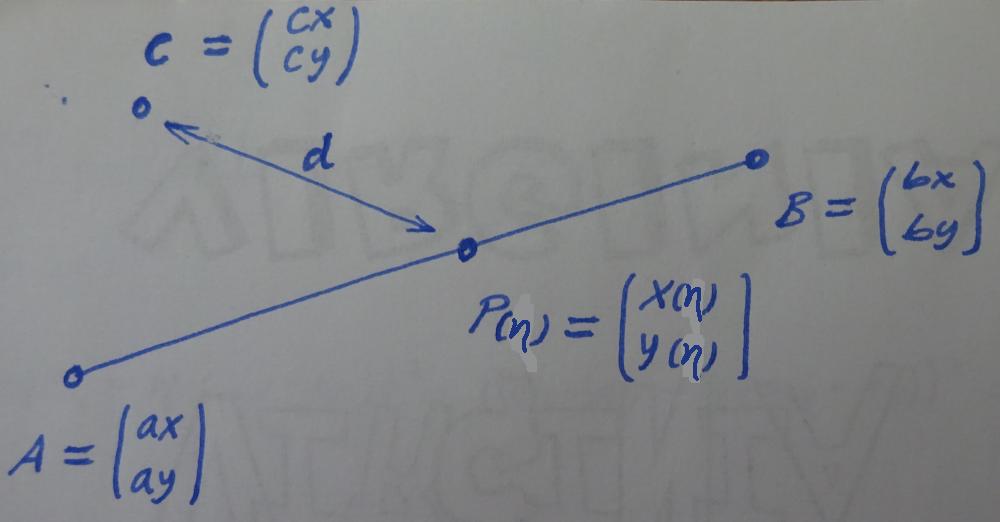 C = (cx
cy)
d
B = (bx
by)
P(η) = [x(η)
y(η)]
A = (ax
ay)